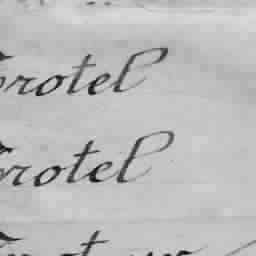 Trotel
Trotel